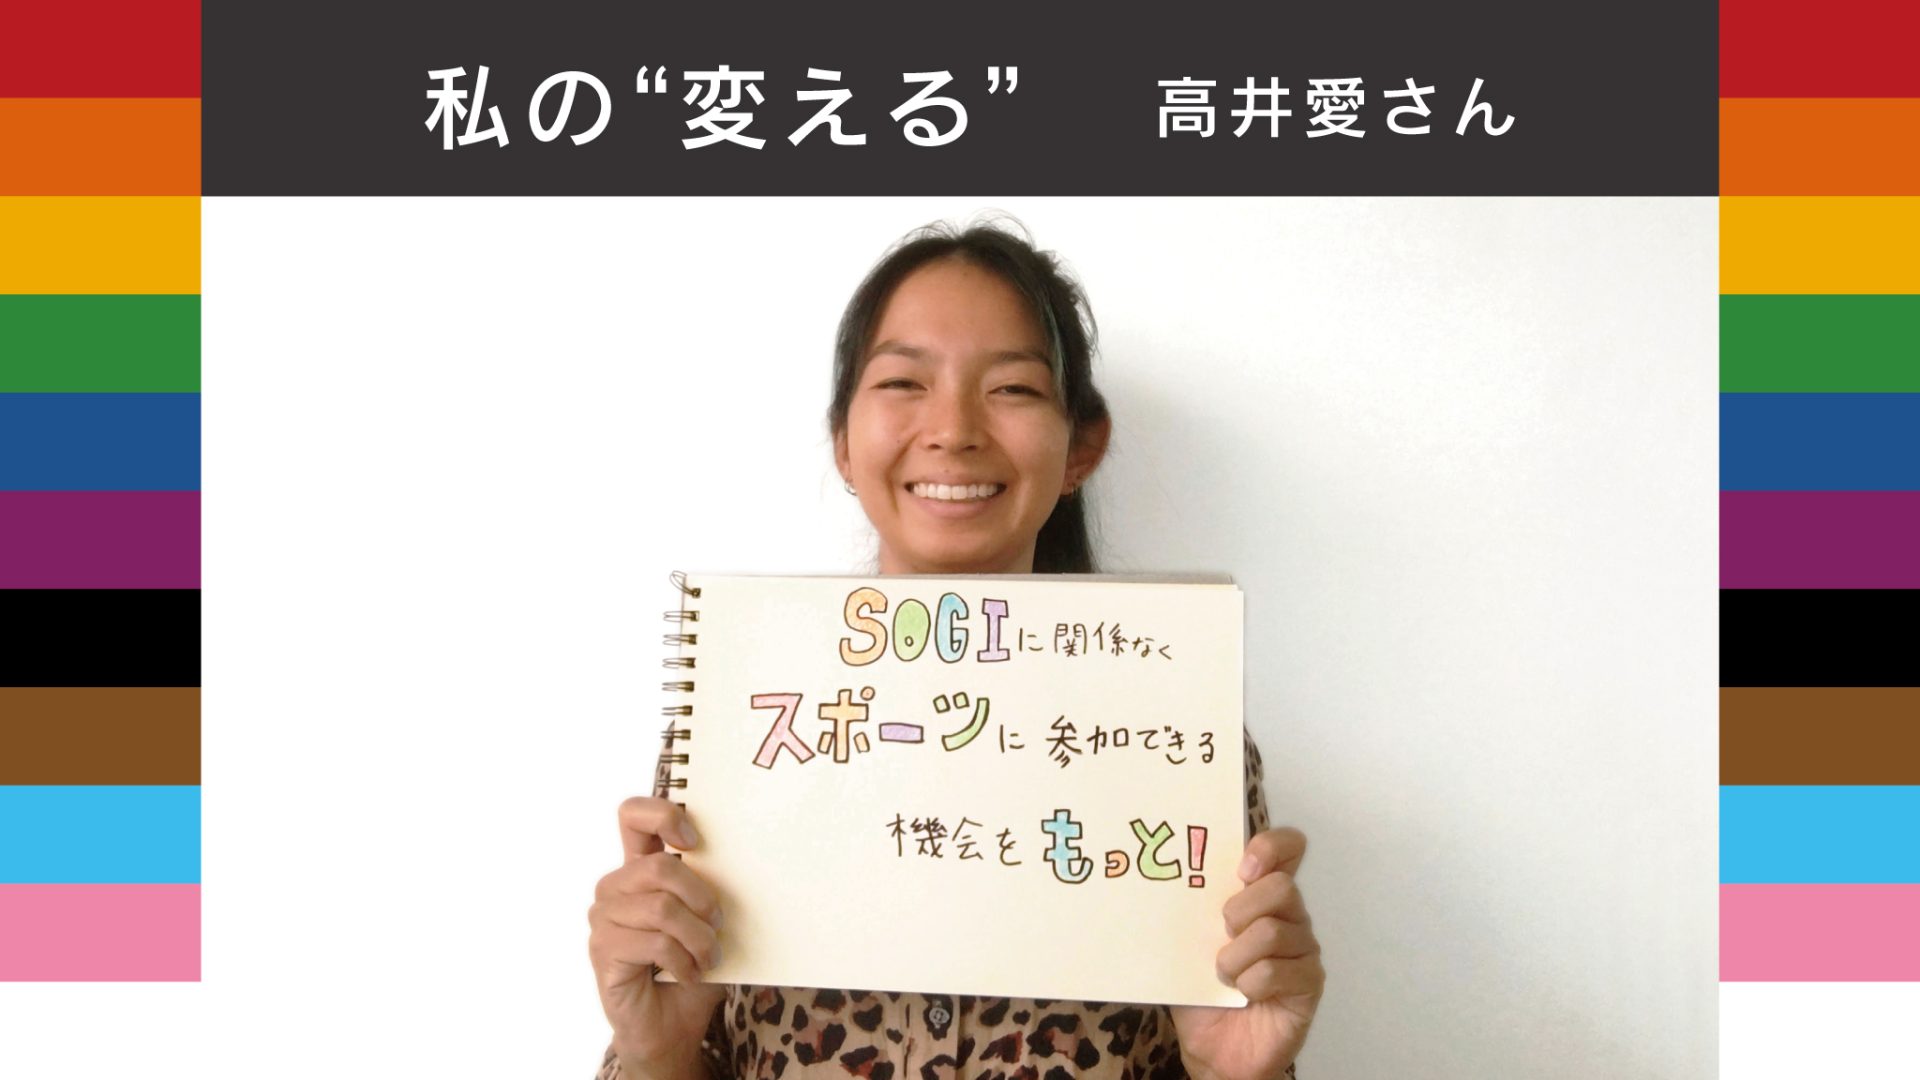 私の“変える” 高井愛さん
SOGIに関係なく
スポーツに参加できる
機会をもっと!